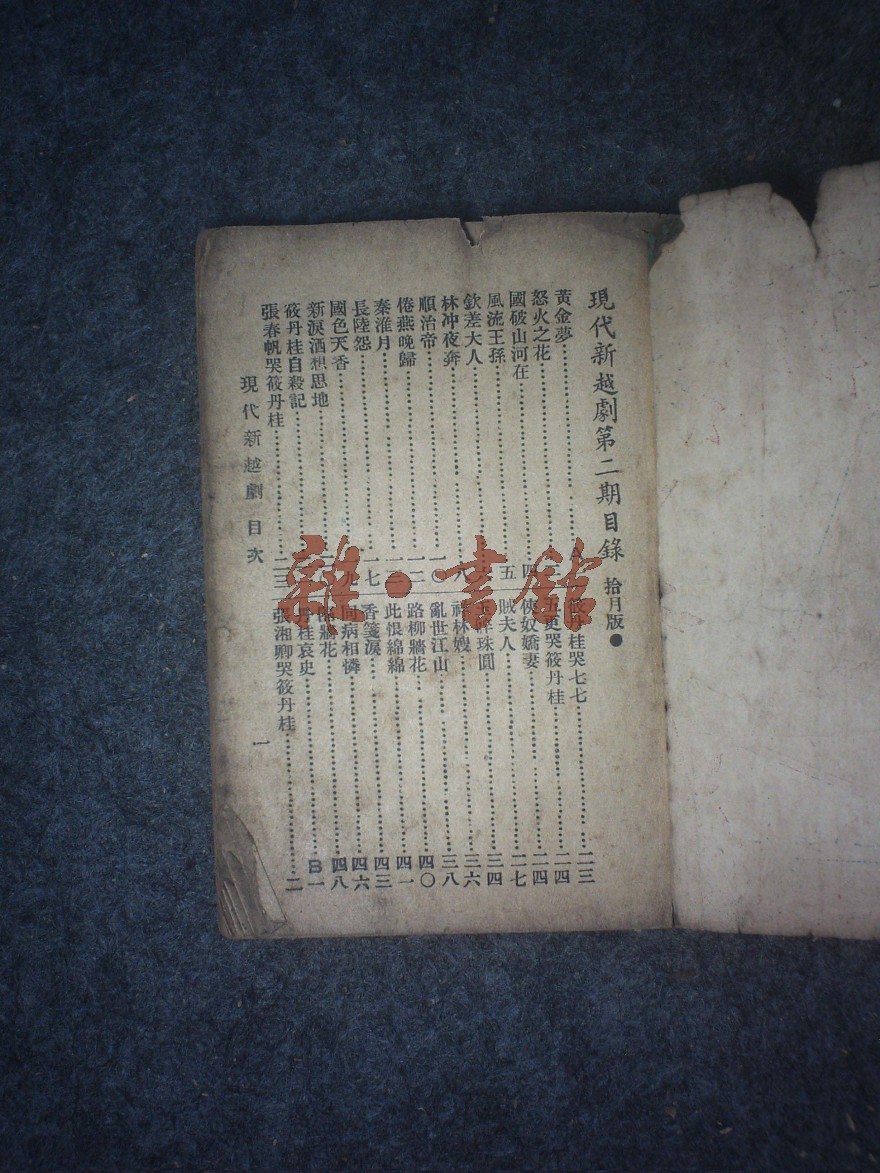 現代新越劇第二期目錄 拾月版●
黃金夢……A
怒火之花……
國破山河在……四
風流王孫……五
欽差大人……
林冲夜奔……八
順治帝……一〇
倦燕晚歸……一二
秦淮月……一三
長陸怨……一七
國色天香……
新淚洒想思地……
筱丹桂自殺記……
張春帆哭筱丹桂……二三
筱丹桂哭七七……二三
五更哭筱丹桂……二四
俠奴嬌妻……二四
賊夫人……二七
碎珠圓……三四
祥林嫂……三六
亂世江山……三八
路柳牆花……四〇
此恨綿綿……四一
香箋淚……四三
同病相憐……四六
隔牆花……四八
丹桂哀史……B一
張湘卿哭筱丹桂……二
現代新越劇 目次
一
雜·書館